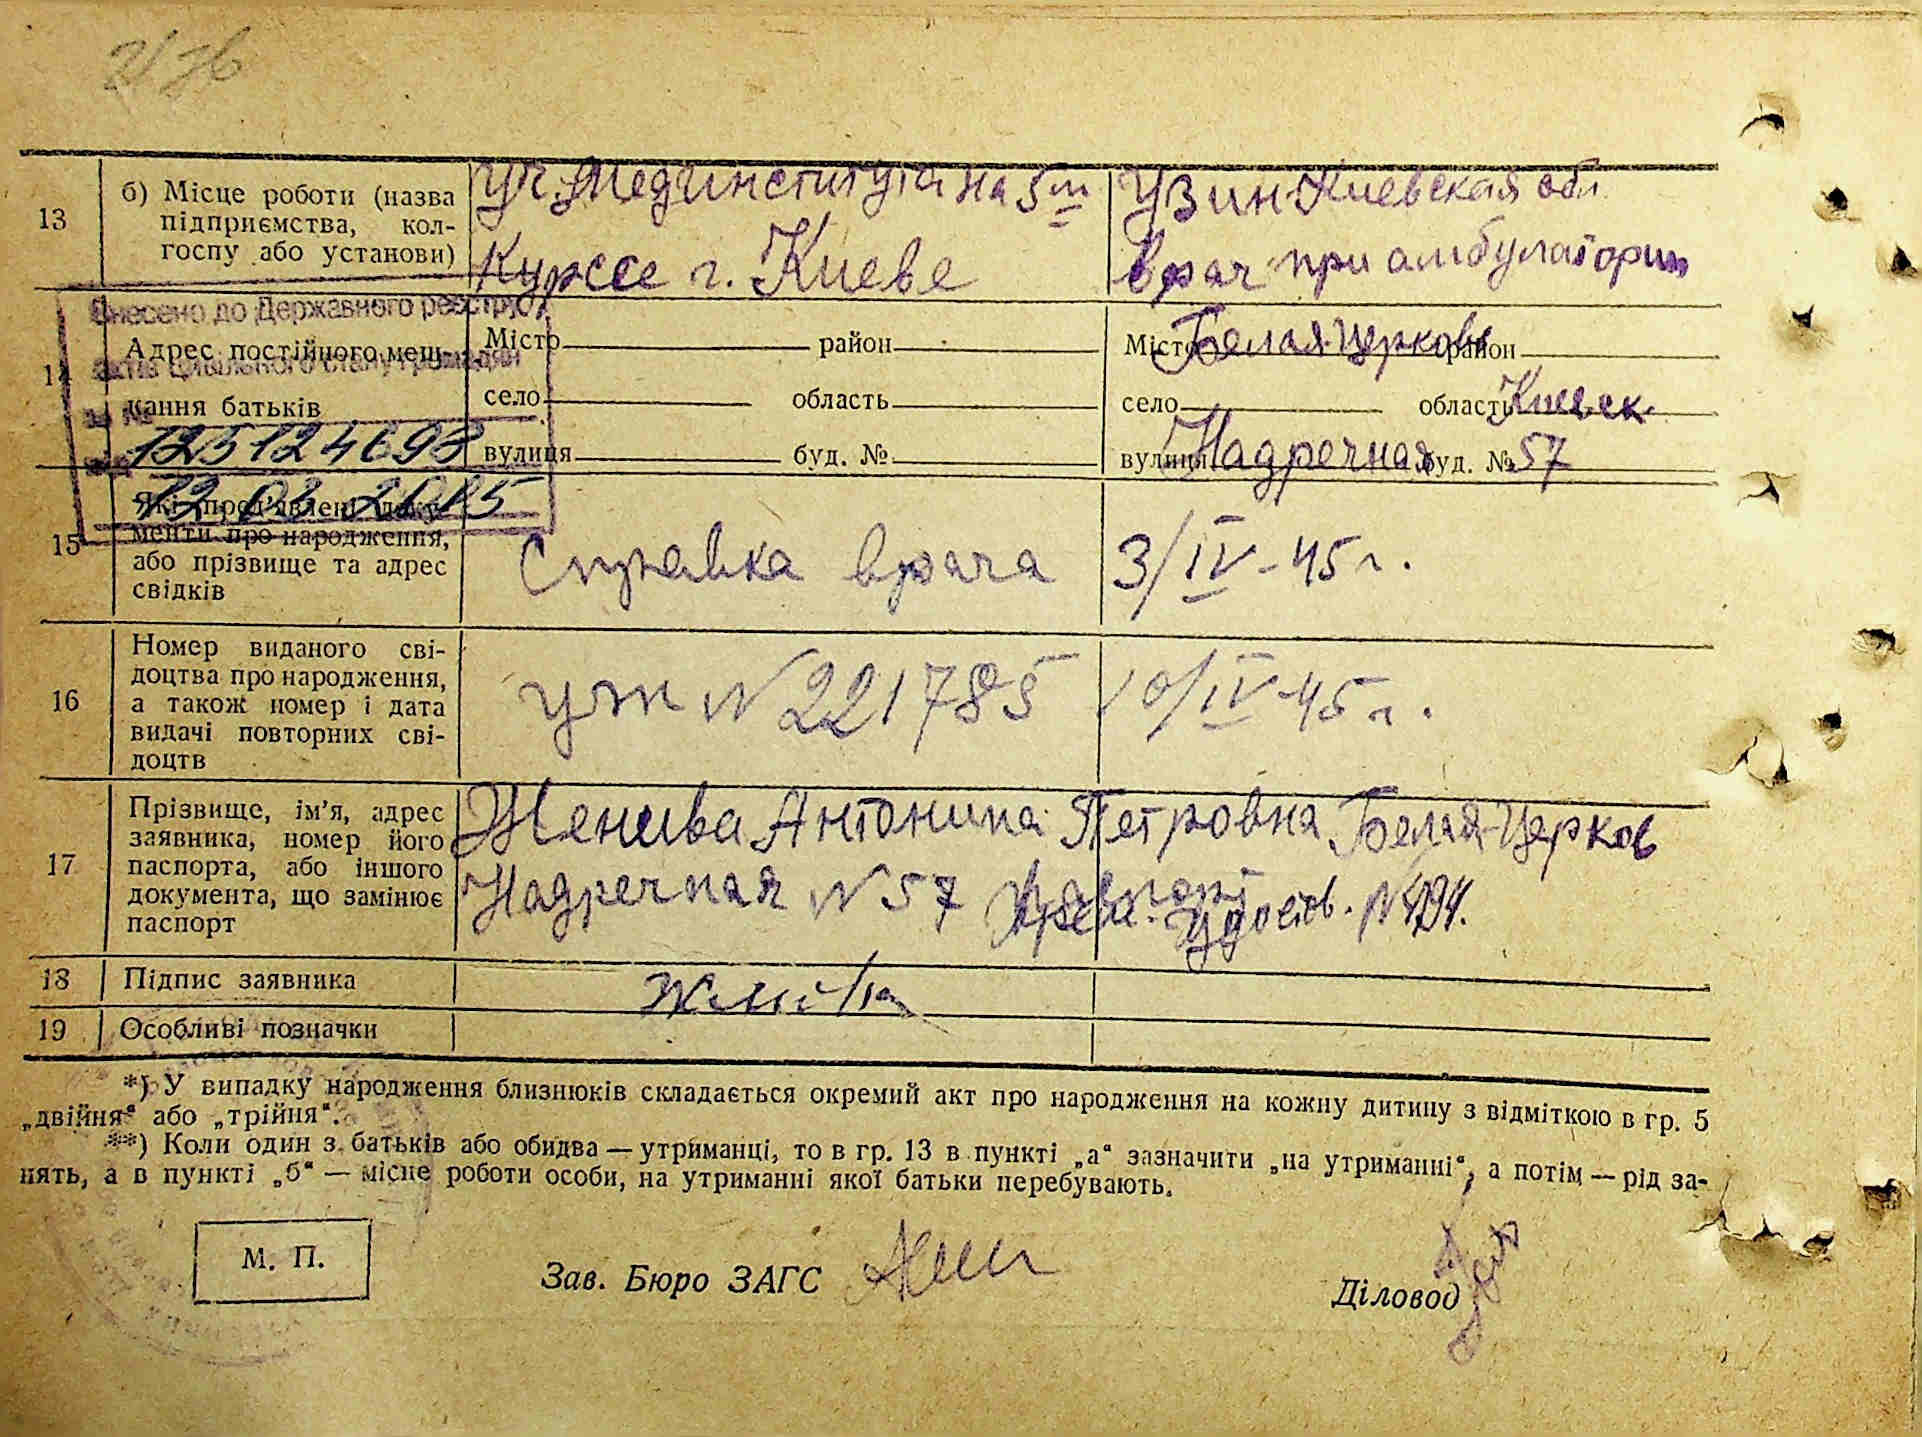 13
б) Місце роботи (назва
підприємства, кол-
госпу або установи)
Уч. Мединститута на 5м
Курссе г. Киеве
Узин Киевская обл.
врач при амбулатории
Внесено до Державного реєстру
актів цивільного стану громадян
за №
125124698
12 03 2015
14
Адрес постійного меш-
кання батьків
Місто район
село область
вулиця буд. №
Місто Белая-Церковь район
село область Киевск.
вулиця Надречная буд. № 57
15
Які пред'явлені доку-
менти про народження,
або прізвище та адрес
свідків
Справка врача
3/IV-45 г.
16
Номер виданого сві-
доцтва про народження,
а також номер і дата
видачі повторних сві-
доцтв
N 221785
10/IV-45 г.
17
Прізвище, ім'я, адрес
заявника, номер його
паспорта, або іншого
документа, що замінює
паспорт
Женива Антонина Петровна Белая-Церков
Надречная N 57 удостов.
18
Підпис заявника
19
Особливі позначки
*) У випадку народження близнюків складається окремий акт про народження на кожну дитину з відміткою в гр. 5
„двійня“ або „трійня“.
**) Коли один з батьків або обидва — утриманці, то в гр. 13 в пункті „а“ зазначити „на утриманні“, а потім — рід за-
нять, а в пункті „б“ — місце роботи особи, на утриманні якої батьки перебувають.
М. П.
Зав. Бюро ЗАГС
Діловод